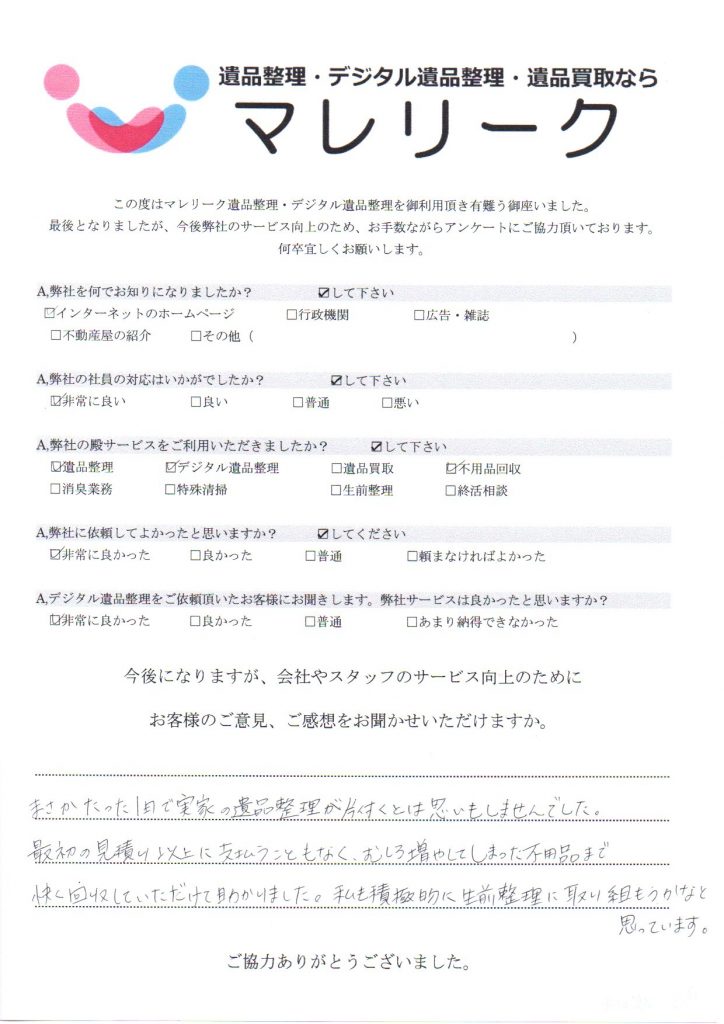 遺品整理・デジタル遺品整理・遺品買取なら
マレリーク
この度はマレリーク遺品整理・デジタル遺品整理を御利用頂き有難う御座いました。
最後となりましたが、今後弊社のサービス向上のため、お手数ながらアンケートにご協力頂いております。
何卒宜しくお願いします。
A,弊社を何でお知りになりましたか? ☑して下さい
☑インターネットのホームページ □行政機関 □広告・雑誌
□不動産屋の紹介 □その他( )
A,弊社の社員の対応はいかがでしたか? ☑して下さい
☑非常に良い □良い □普通 □悪い
A,弊社の殿サービスをご利用いただきましたか? ☑して下さい
☑遺品整理 ☑デジタル遺品整理 □遺品買取 ☑不用品回収
□消臭業務 □特殊清掃 □生前整理 □終活相談
A,弊社に依頼してよかったと思いますか? ☑してください
☑非常に良かった □良かった □普通 □頼まなければよかった
A,デジタル遺品整理をご依頼頂いたお客様にお聞きします。弊社サービスは良かったと思いますか?
☑非常に良かった □良かった □普通 □あまり納得できなかった
今後になりますが、会社やスタッフのサービス向上のために
お客様のご意見、ご感想をお聞かせいただけますか。
まさかたった1日で実家の遺品整理が片付くとは思いもしませんでした。
最初の見積り以上に支払うこともなく、むしろ増やしてしまった不用品まで
快く回収していただけて助かりました。私も積極的に生前整理に取り組もうかなと
思っています。
ご協力ありがとうございました。